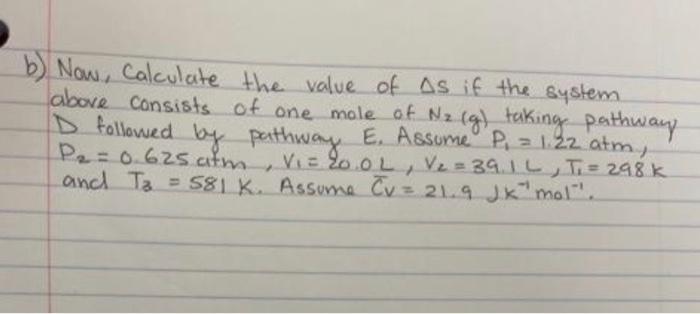 b) Now, Calculate the value of ΔS if the system
above consists of one mole of N₂ (g) taking pathway
D followed by pathway E. Assume P₁ = 1.22 atm,
P₂ = 0.625 atm, V₁ = 20.0 L, V₂ = 39.1 L, T₁ = 298 K
and T₃ = 581 K. Assume C̅v = 21.9 JK⁻¹ mol⁻¹.